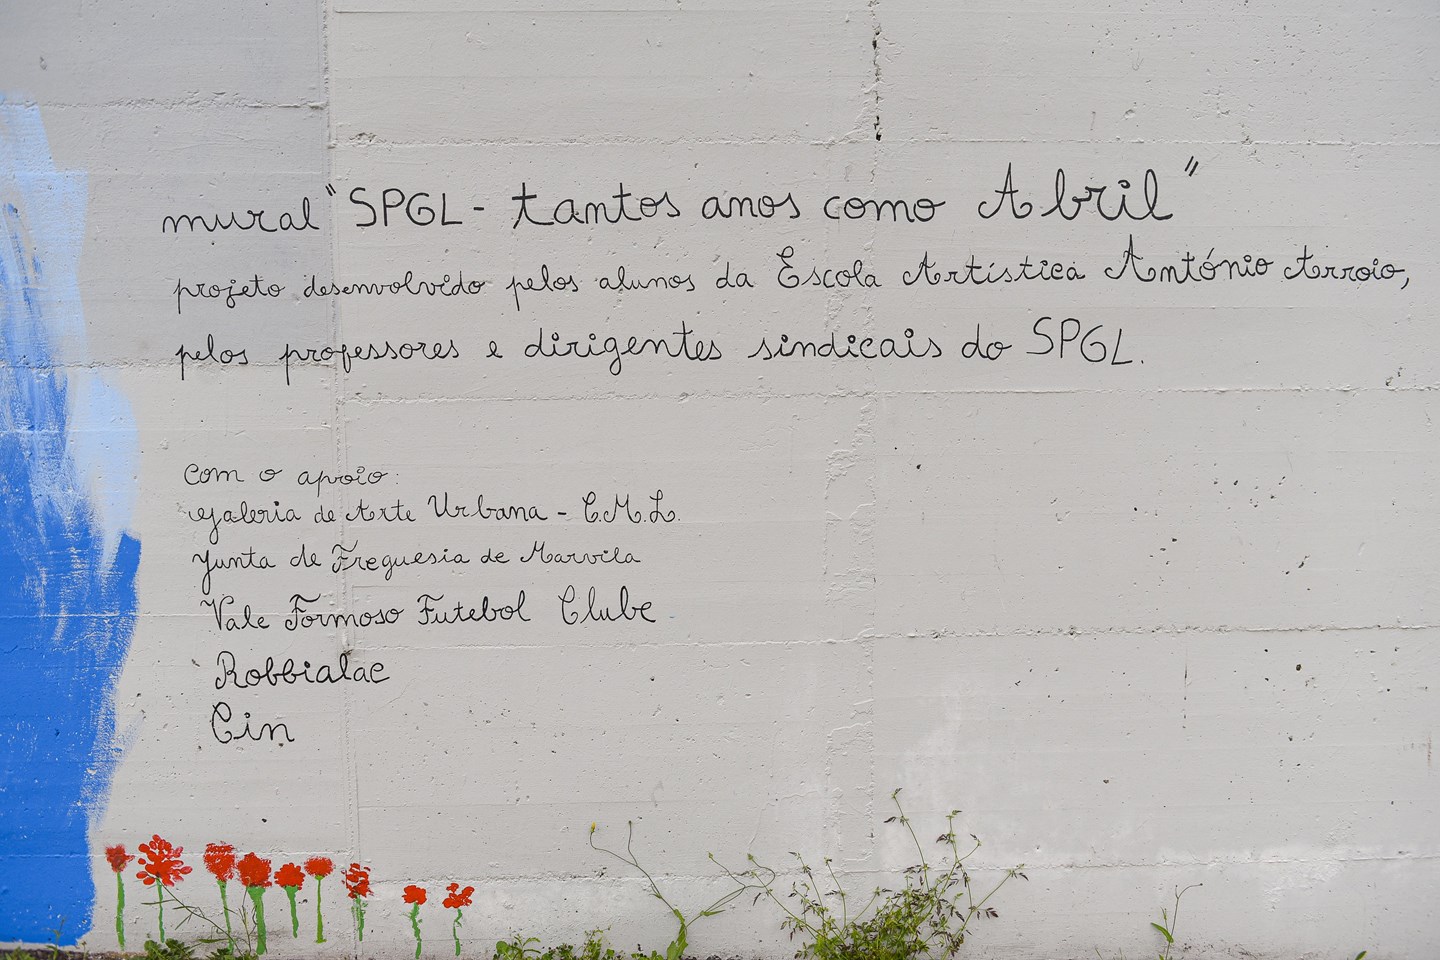 mural "SPGL - tantos anos como Abril"
projeto desenvolvido pelos alunos da Escola Artística António Arroio,
pelos professores e dirigentes sindicais do SPGL.
com o apoio:
Galeria de Arte Urbana - C.M.L.
Junta de Freguesia de Marvila
Vale Formoso Futebol Clube
Robbialac
Cin